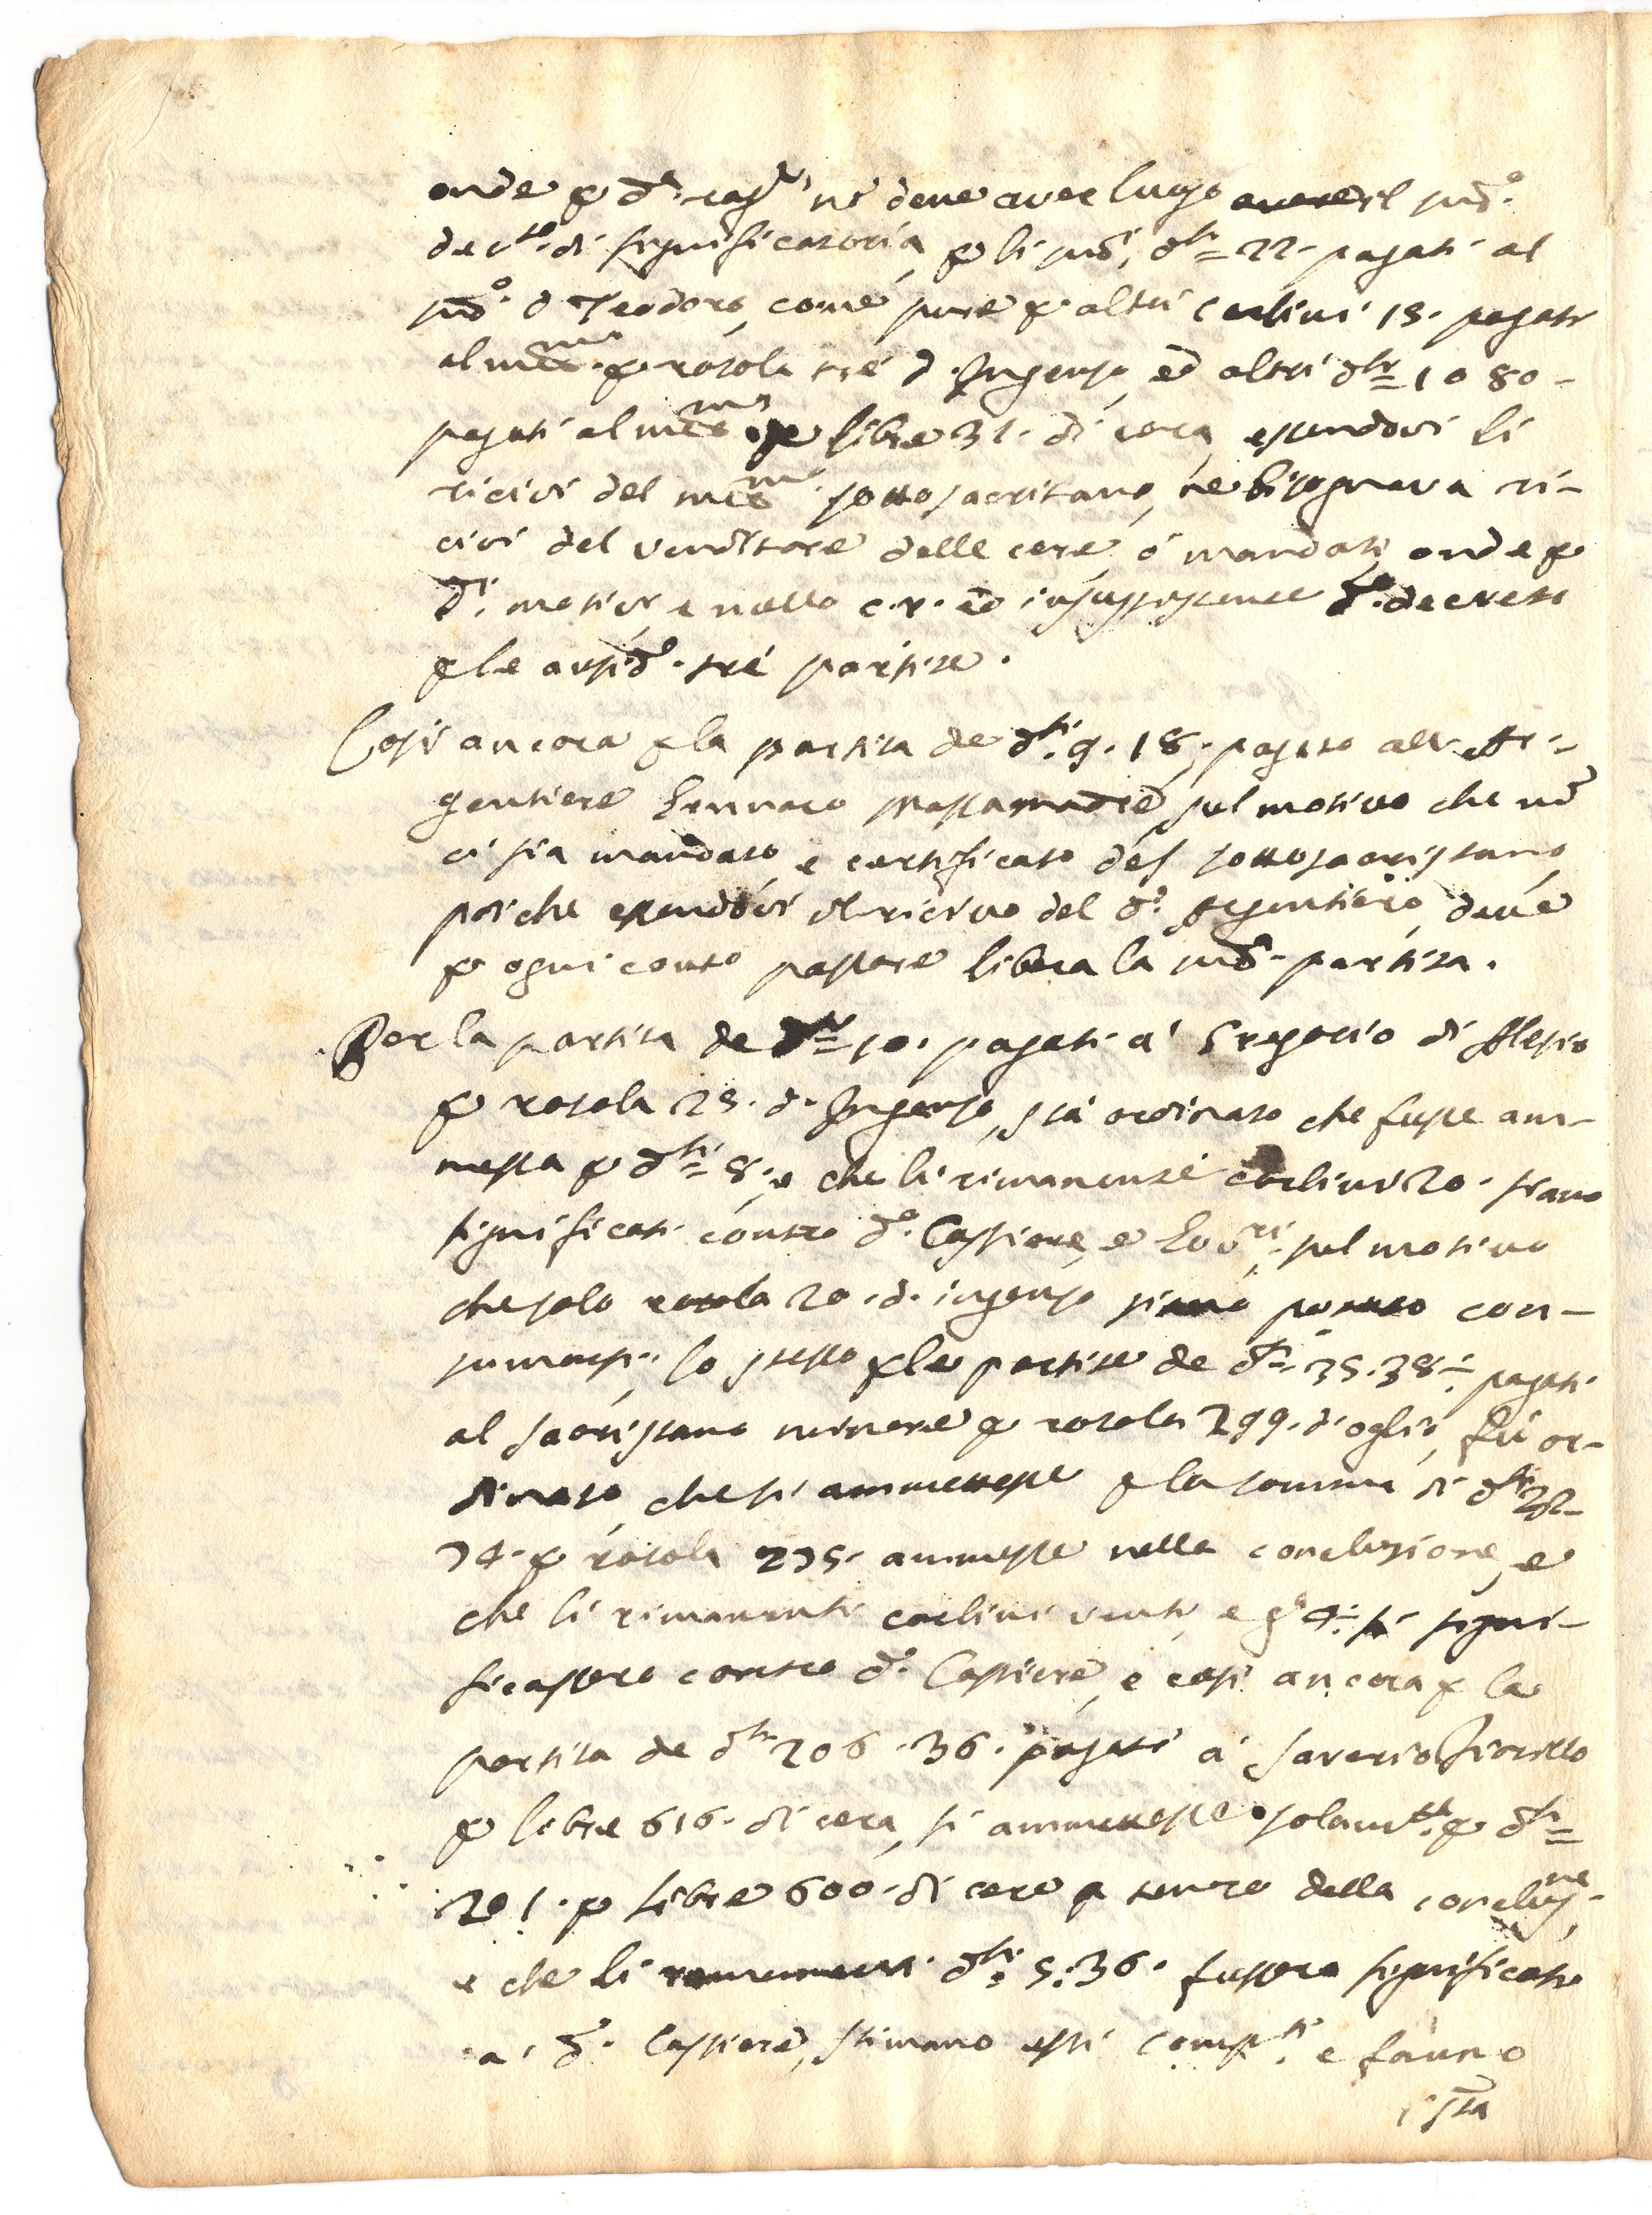 onde p d.ª rag.e nõ deve aver lugo il sud.º
dec.to di significatoria, p li sud.i d.ti = 22 - pagati al
sud.º D Teodoro, come pure p altri carlini 15. pagati
al med.mo p rotola tré d. Ingenso, ed altri d.ti = 10 80 -
pagati al med.mo p libre 31. di cera, essendovi li
ricivi del med.mo sottosacristano, né bisognava ri-
civi del venditore delle cere, ó mandati, onde p
d.i motivi, e nullo c. r. ed insussistente d.º decreto
p le ausid.e tré partite.
Così ancora p la partita de d.ti 9. 18. pagato all Ar-
gentiere Gennaro Massamadre, sul motivo che nõ
ci sia mandato, e certificato del sottosacristano,
poiche essendovi il ricivo del d.º Argentiero, devé
p ogni conto passare libera la sud.ª partita.
Per la partita de d.ti = 10. pagati á Gregorio di Alesio
p rotola 25. d. Ingenso, stá ordinato che fusse am-
messa p d.ti = 8., e che li rimanenti carlini 20. siano
significati contro d.º Cassiere, e Raz.li, sul motivo
che solo rotola 20. d. ingenso siano consu-
mati; lo stesso p le partite de d.ti = 35. 38 ÷ pagati
al sacristano minore p rotola 299. d'oglio, fú or-
dinato, che si ammettesse p la somma di d.ti 32-
74. p rotola 275. ammesse nella conclusione, e
che li rimanenti carlini venti, e g.a 4 ÷ si signi-
ficassero contro d.º Cassiere, e così ancora p la
partita de d.ti 206. 36. pagati á Saverio Fiorillo
p libre 616. di cera, si ammettesse solam.te p d.ti =
201. p libre 600. di cera a tenore della conclus.ne
e che li rimanenti d.ti 5. 36. fussero significati
a' d.º Cassiere, stimano essi comp.ti e fanno
ista